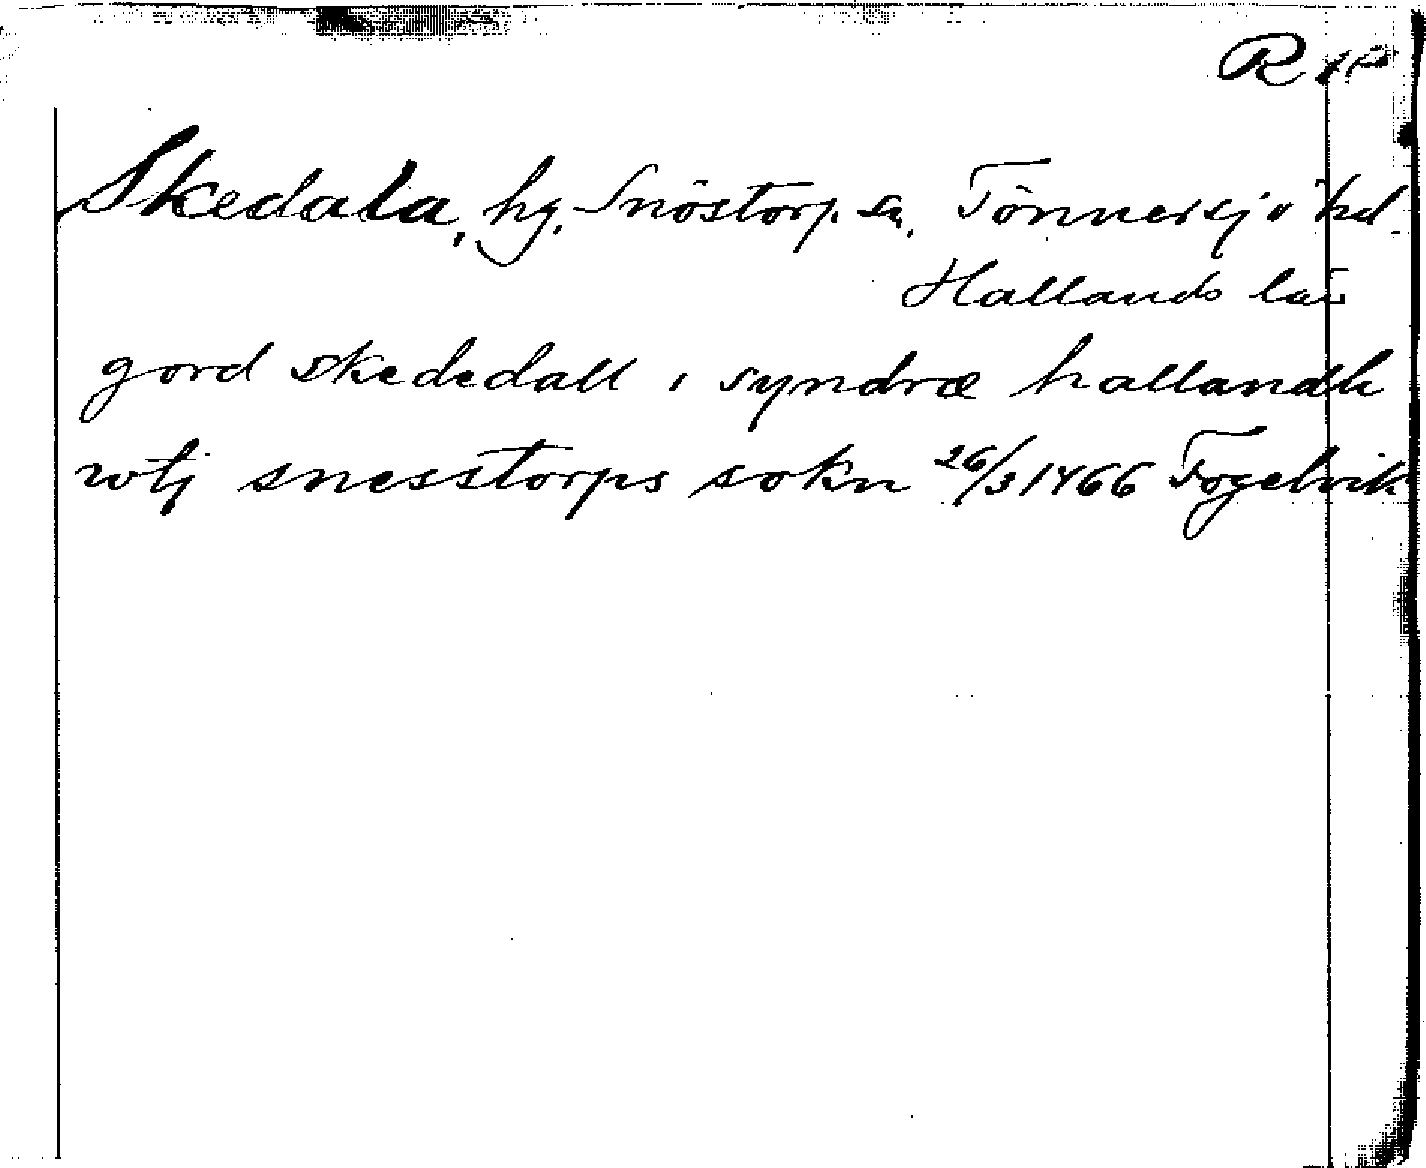 RAP
Skedala, hg, Snöstorp sn, Tönnersjö hd
Hallands län
gord skededall i syndræ hallandh
wtj snesstorps sokn 26/3 1466 Fogelvik